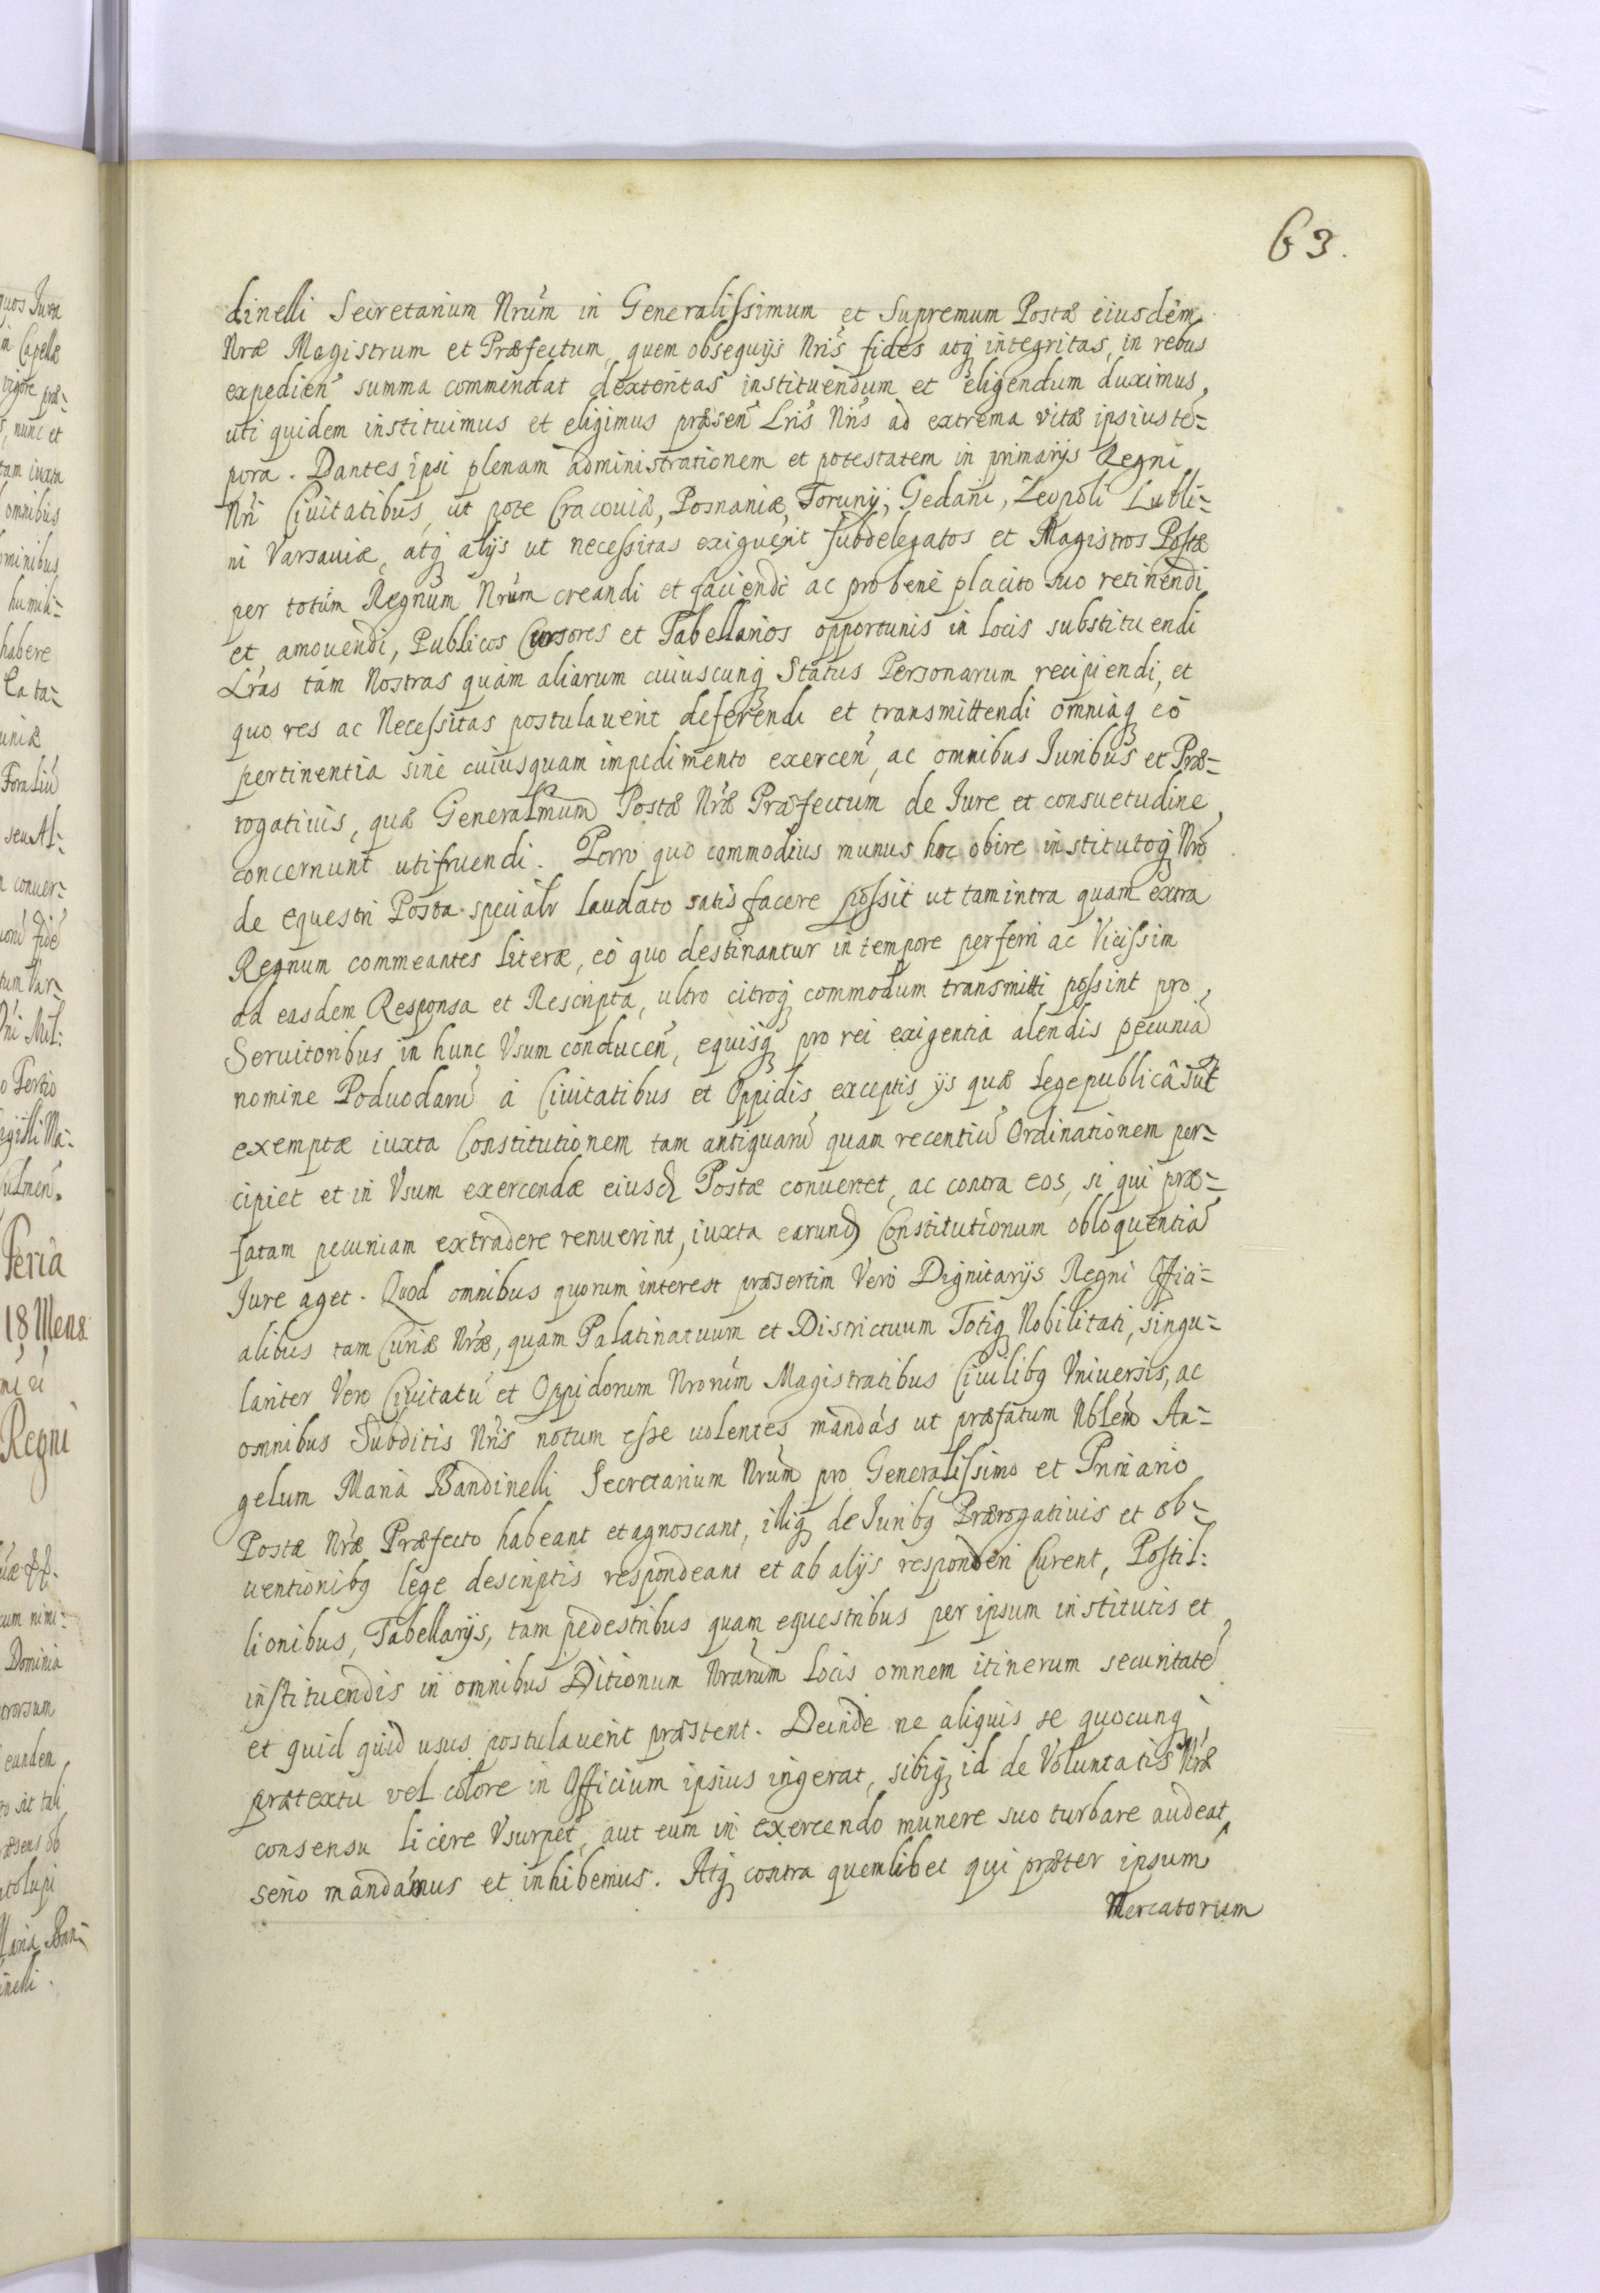 63.
dinelli Secretarium Nrũm in Generalissimum et Supremum Postæ eiusdem
Nræ Magistrum et Præfectum, quem obsequijs Nris fides atq integritas, in rebus
expedien̄ summa commendat dexteritas instituendum et eligendum duximus,
uti quidem instituimus et eligimus præsen̄ Lris Nris ad extrema vitæ ipsius te-
pora. Dantes ipsi plenam administrationem et potestatem in primarijs Regni
Nri Ciuitatibus, ut pote Cracouiæ, Posnaniæ, Torunij, Gedani, Leopoli Lubli-
ni Varsauiæ, atq alijs ut necessitas exiguerit subdelegatos et Magistros Postæ
per totum Regnum Nrum creandi et faciendi ac pro bene placito suo retinendi
et, amouendi, Publicos Cursores et Tabellarios opportunis in locis substituendi
Lras tam Nostras quam aliarum cuiuscunq Status Personarum recipiendi, et
quo res ac Necessitas postulauerit deferendi et transmittendi omniaq eo
pertinentia sine cuiusquam impedimento exercen̄, ac omnibus Juribus et Præ-
rogatiuis, quæ Generalmum Postæ Nræ Præfectum de Jure et consuetudine
concernunt utifruendi. Porro quo commodius munus hoc obire institutoq Nro
de equestri Posta speciatr laudato satis facere possit ut tam intra quam extra
Regnum commeantes literæ, eo quo destinantur in tempore perferri ac Vicissim
ad easdem Responsa et Rescripta, ultro citroq commodum transmitti possint pro
Seruitoribus in hunc Vsum conducen̄, equisq pro rei exigentia alendis pecuniã
nomine Poduodarũ à Ciuitatibus et Oppidis exceptis ijs quæ Lege publicâ sut
exemptæ iuxta Constitutionem tam antiquarũ quam recentiũ Ordinationem per-
cipiet et in Vsum exercendæ eiusd Postæ conuertet, ac contra eos, si qui præ-
fatam pecuniam extradere renuerint, iuxta earund Constitutionum obloquentiã
Jure aget. Quod omnibus quorum interest præsertim Vero Dignitarijs Regni Offici-
alibus tam Curiæ Nræ, quam Palatinatuum et Districtuum Totiq Nobilitati, singu-
lariter Vero Ciuitatũ et Oppidorum Nrorum Magistratibus Ciuilibq Vniuersis, ac
omnibus Subditis Nris notum esse uolentes mandãs ut præfatum Nblem An-
gelum Mariã Bandinelli Secretarium Nrum pro Generalissimo et Primario
Postæ Nræ Præfecto habeant et agnoscant, illiq de Juribq Prærogatiuis et ob-
uentionibq lege descriptis respondeant et ab alijs responderi Curent, Postil:
lionibus, Tabellarijs, tam pedestribus quam equestribus per ipsum institutis et
instituendis in omnibus Ditionum Nrarum Locis omnem itinerum securitatẽ
et quid quid usus postulauerit præstent. Deinde ne aliquis se quocunq
prætextu vel colore in Officium ipsius ingerat, sibiq id de Voluntatis Nræ
consensu licere Vsurpet, aut eum in exercendo munere suo turbare audeat
serio mandamus et inhibemus. Atq contra quemlibet qui præter ipsum
Mercatorum